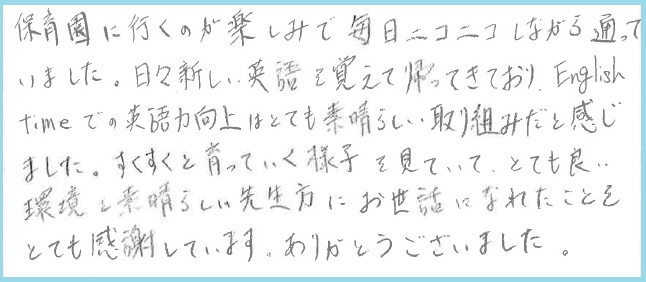 保育園に行くのが楽しみで毎日ニコニコしながら通って
いました。日々新しい英語を覚えて帰ってきており、English
timeでの英語力向上はとても素晴らしい取り組みだと感じ
ました。すくすくと育っていく様子を見ていて、とても良い
環境と素晴らしい先生方にお世話になれたことを
とても感謝しています。ありがとうございました。